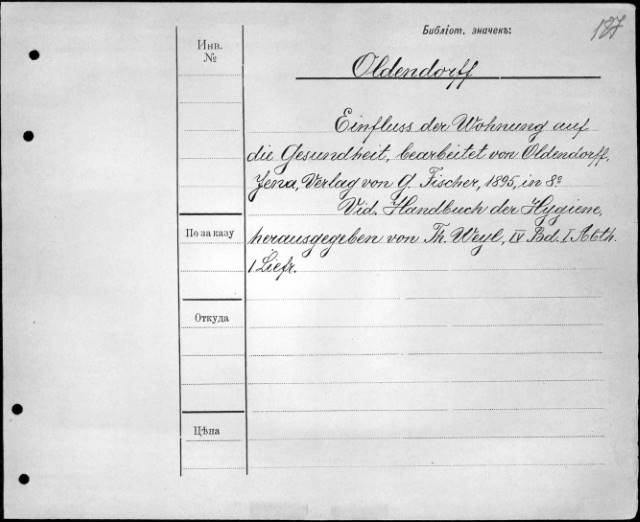 Библіот. значекъ:
187
Инв.
№
Oldendorff
Einfluss der Wohnung auf
die Gesundheit, bearbeitet von Oldendorff,
Jena, Verlag von G. Fischer, 1895, in 8º
Vid. Handbuch der Hygiene,
По заказу
herausgegeben von Th. Weyl, IV Bd. I Abth.
1 Liefr.
Откуда
Цѣна